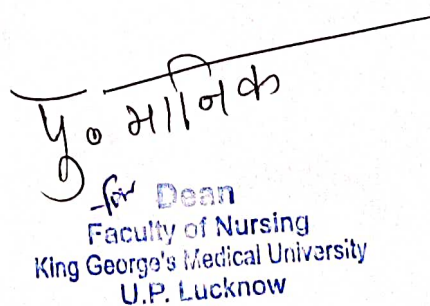 पु० मानिक
for Dean
Faculty of Nursing
King George's Medical University
U.P. Lucknow